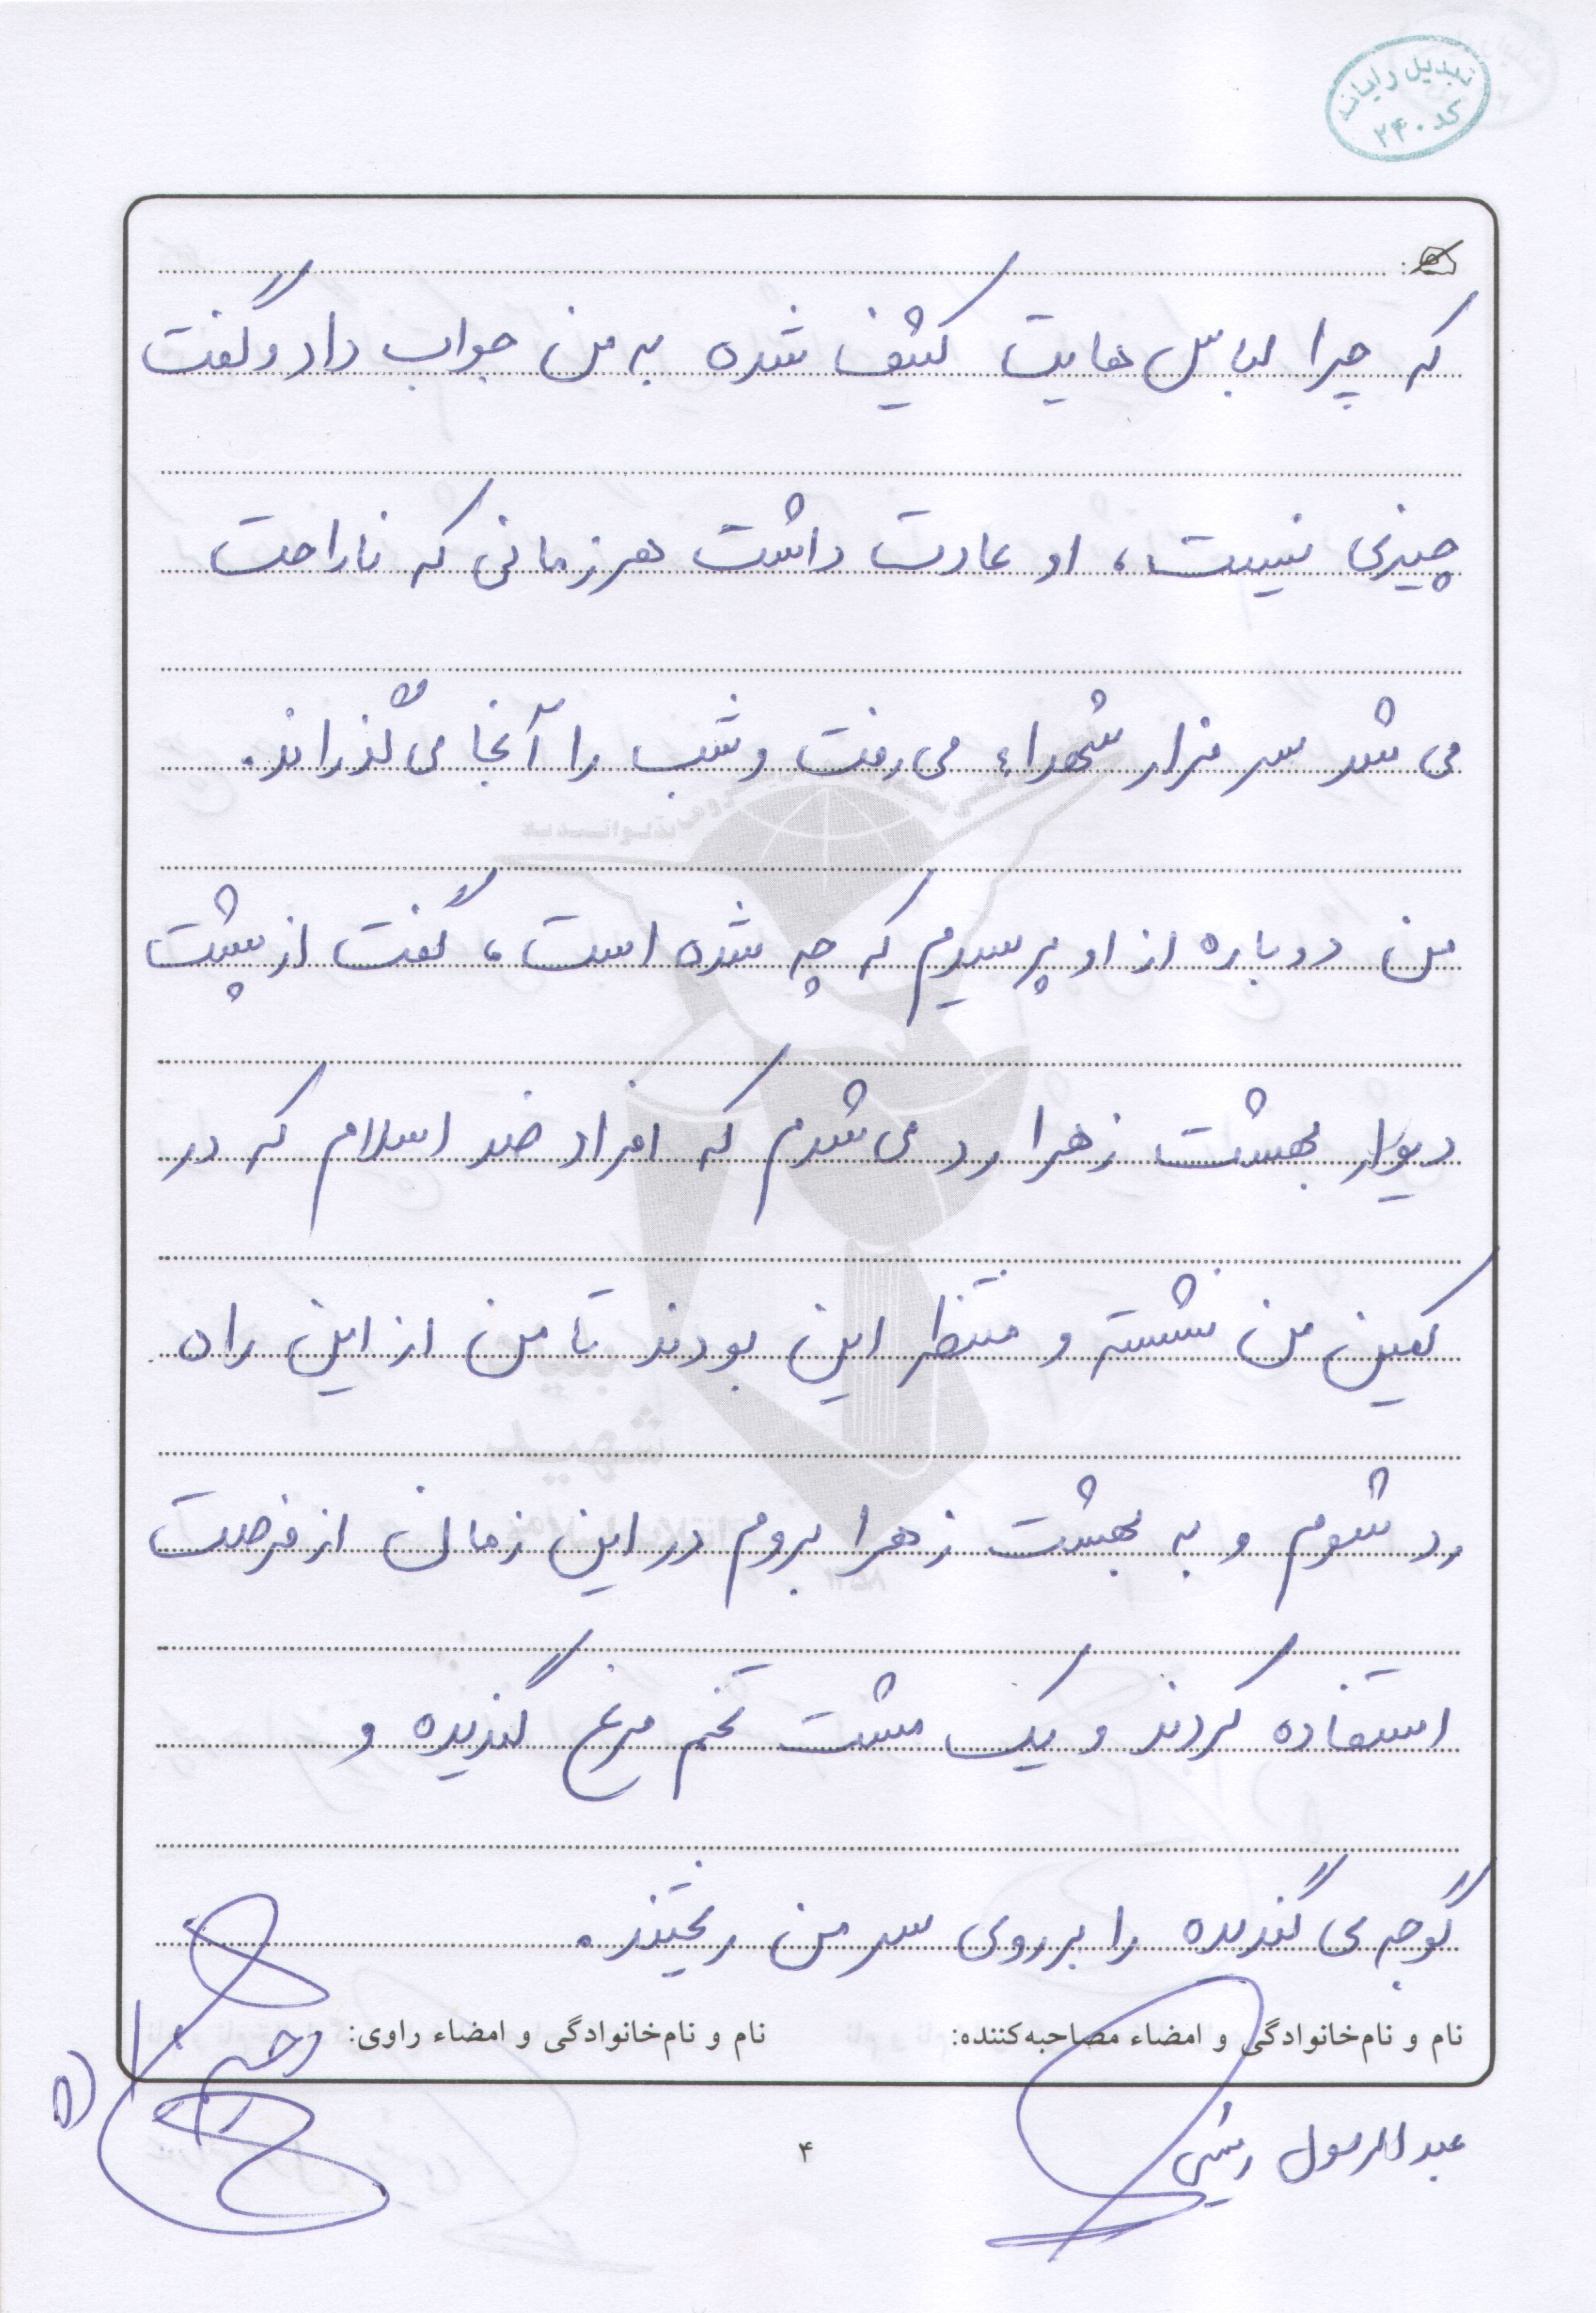 تبدیل رایانه
کد ۲۴۰
که چرا لباس هایت کثیف شده به من جواب داد و گفت
چیزی نیست، او عادت داشت هر زمانی که ناراحت
می شد سر مزار شهداء می رفت و شب را آنجا می گذراند.
من دوباره از او پرسیدم که چه شده است، گفت از پشت
دیوار بهشت زهرا رد می شدم که افراد ضد اسلام که در
کمین من نشسته و منتظر این بودند تا من از این راه
رد شوم و به بهشت زهرا بروم در این زمان از فرصت
استفاده کردند و یک مشت تخم مرغ گندیده و
گوجه ی گندیده را بر روی سر من ریختند.
نام و نام‌خانوادگی و امضاء مصاحبه‌کننده: نام و نام‌خانوادگی و امضاء راوی:
عبدالرسول
۴